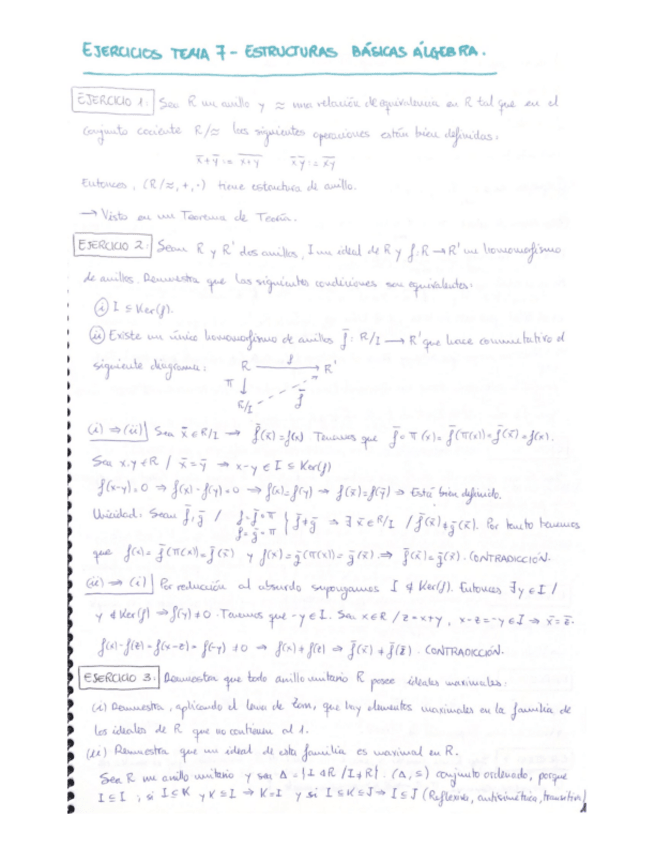 EJERCICIOS TEMA 7 - ESTRUCTURAS BÁSICAS ÁLGEBRA.
EJERCICIO 1: Sea R un anillo y ≈ una relación de equivalencia en R tal que en el
conjunto cociente R/≈ las siguientes operaciones están bien definidas:
x̅+y̅ := \overline{x+y}   x̅y̅ := \overline{xy}
Entonces, (R/≈,+,·) tiene estructura de anillo.
→ Visto en un Teorema de Teoría.
EJERCICIO 2: Sean R y R' dos anillos, I un ideal de R y f: R → R' un homomorfismo
de anillos. Demuestra que las siguientes condiciones son equivalentes:
(i) I ⊆ Ker(f).
(ii) Existe un único homomorfismo de anillos f̅: R/I → R' que hace conmutativo el
siguiente diagrama: R f R'
π
R/I f̅
(i) ⇒ (ii) Sea x̅ ∈ R/I → f̅(x̅)=f(x) Tenemos que f̅∘π(x)=f̅(π(x))=f̅(x̅)=f(x).
Sea x,y ∈ R / x̅=y̅ ⇒ x-y ∈ I ⊆ Ker(f)
f(x-y)=0 ⇒ f(x)-f(y)=0 ⇒ f(x)=f(y) ⇒ f̅(x̅)=f̅(y̅) ⇒ Está bien definido.
Unicidad: Sean f̅, g̅ / f=f̅∘π f=g̅∘π } f̅≠g̅ ⇒ ∃ x̅ ∈ R/I / f̅(x̅)≠g̅(x̅). Por tanto tenemos
que f(x)=f̅(π(x))=f̅(x̅) y f(x)=g̅(π(x))=g̅(x̅) ⇒ f̅(x̅)=g̅(x̅). CONTRADICCIÓN.
(ii) ⇒ (i) Por reducción al absurdo supongamos I ⊄ Ker(f). Entonces ∃ y ∈ I /
y ∉ Ker(f) ⇒ f(y) ≠ 0. Tenemos que -y ∈ I. Sea x ∈ R / z=x+y, x-z=-y ∈ I ⇒ x̅=z̅.
f(x)-f(z)=f(x-z)=f(-y) ≠ 0 ⇒ f(x)≠f(z) ⇒ f̅(x̅)≠f̅(z̅). CONTRADICCIÓN.
EJERCICIO 3. Demuestra que todo anillo unitario R posee ideales maximales:
(i) Demuestra, aplicando el lema de Zorn, que hay elementos maximales en la familia de
los ideales de R que no contienen al 1.
(ii) Demuestra que un ideal de esta familia es maximal en R.
Sea R un anillo unitario y sea Δ = {I ⊲ R / I ≠ R}. (Δ, ⊆) conjunto ordenado, porque
I ⊆ I, si I ⊆ K y K ⊆ I ⇒ K=I y si I ⊆ K ⊆ J ⇒ I ⊆ J (Reflexiva, antisimétrica, transitiva)